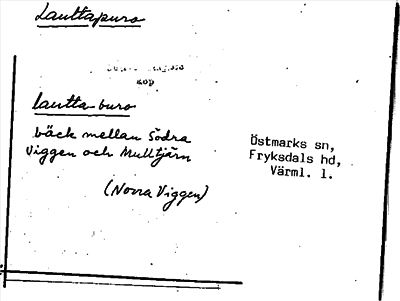 Lauttapuro
KOP
lautta-buro
bäck mellan Södra
Viggen och Mulltjärn
(Norra Viggen)
Östmarks sn,
Fryksdals hd,
Värml. l.